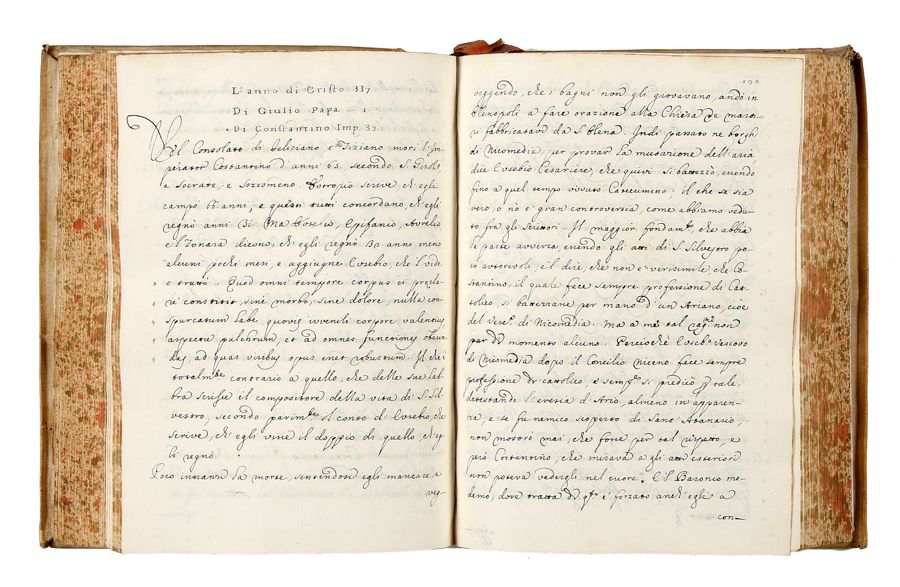 L'anno di Cristo 337
Di Giulio Papa — 1.
Di Constantino Imp. 32.
Nel Consolato di Feliciano, e Tiziano, morì l'Im
pirator Costantino d'anni 65, secondo S. Girolo
e Socrate, e Sozomeno. Eutropio scrive, ch'egli
campò 66 anni; e questi tutti concordano, ch'egli
regnò anni 31. Ma Eusebio, Epifanio, Aurelio
e l'Zonara dicono, ch'egli regnò 32 anni meno
alcuni pochi mesi, e aggiugne Eusebio, che l'vide
e trattò. Quod omni tempore corpus ei præcla
rè constitit, sinè morbo, sine dolore, nulla con
spurcatum labe quovis iuvenili corpore valentius
aspectu pulchrum, et ad omnes functiones obeun
das, ad quas viribus opus esset robustum. Il che
totalmte contrario a quello, che della sua leb
bra scrisse il compositore della vita di S. Sil
vestro, secondo parimte il conto d'Eusebio, che
scrive, ch'egli visse il doppio di quello, ch'e
gli regnò.
Poco innanzi la morte, sentendosi egli mancare, e
veg-
190
veggendo, che i bagni non gli giovavano, andò in
Elenopoli a fare orazione alla Chiesa de' marti
ri fabbricatavi da S. Elena. Indi passato ne' borghi
di Nicomedia, per provar la mutazione dell'aria
dice Eusebio Cesariese, che quivi si battezzò, essendo
fino a quel tempo vissuto Catecumeno. il che se sia
vero, ò nò è gran controversia, come abbiamo vedu
to fra gli Scrittori. Il maggior fondamto, che abbia
la parte avversa essendo gli atti di S. Silvestro po
co autorevoli è il dire, che non è verisimile che Co
stantino, il quale fece sempre professione di Cat
tolico, si battezzasse per mano d'un Ariano, cioè
del Vesco di Nicomedia. Ma a me tal cagne non
par di momento alcuno. Perciochè Eusebo Vescovo
di Nicomedia dopo il Concilio Niceno fece sempre
professione di cattolico, e sempre si predicò p tale,
detestando l'eresia d'Ario, almeno in apparen-
za, e se fu nemico scoperto di Santo Atanasio,
non mostrò mai, che fosse per tal rispetto, e
però Costantino, che mirava a gli atti esteriori
non poteva vedergli nel cuore. E l'Baronio me-
desimo, dove tratta di qto è forzato anch'egli a
con—